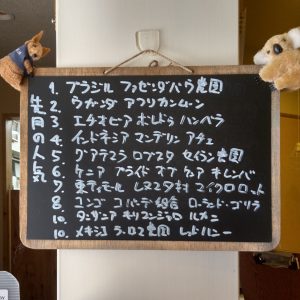 先月の人気
1. ブラジル ファゼンダバウ農園
2. ウガンダ アフリカンムーン
3. エチオピア ハンベラ
4. インドネシア マンデリン アチェ
5. グアテマラ ロブスタ セイラン農園
6. ケニア プライド オブ ケニア キレンバ
7. 東ティモール レスエタ村 マイクロロット
8. コンゴ コパーデ組合 ローランド・ゴリラ
10. タンザニア キリマンジャロ ルカニ
10. メキシコ 農園 レッドハニー